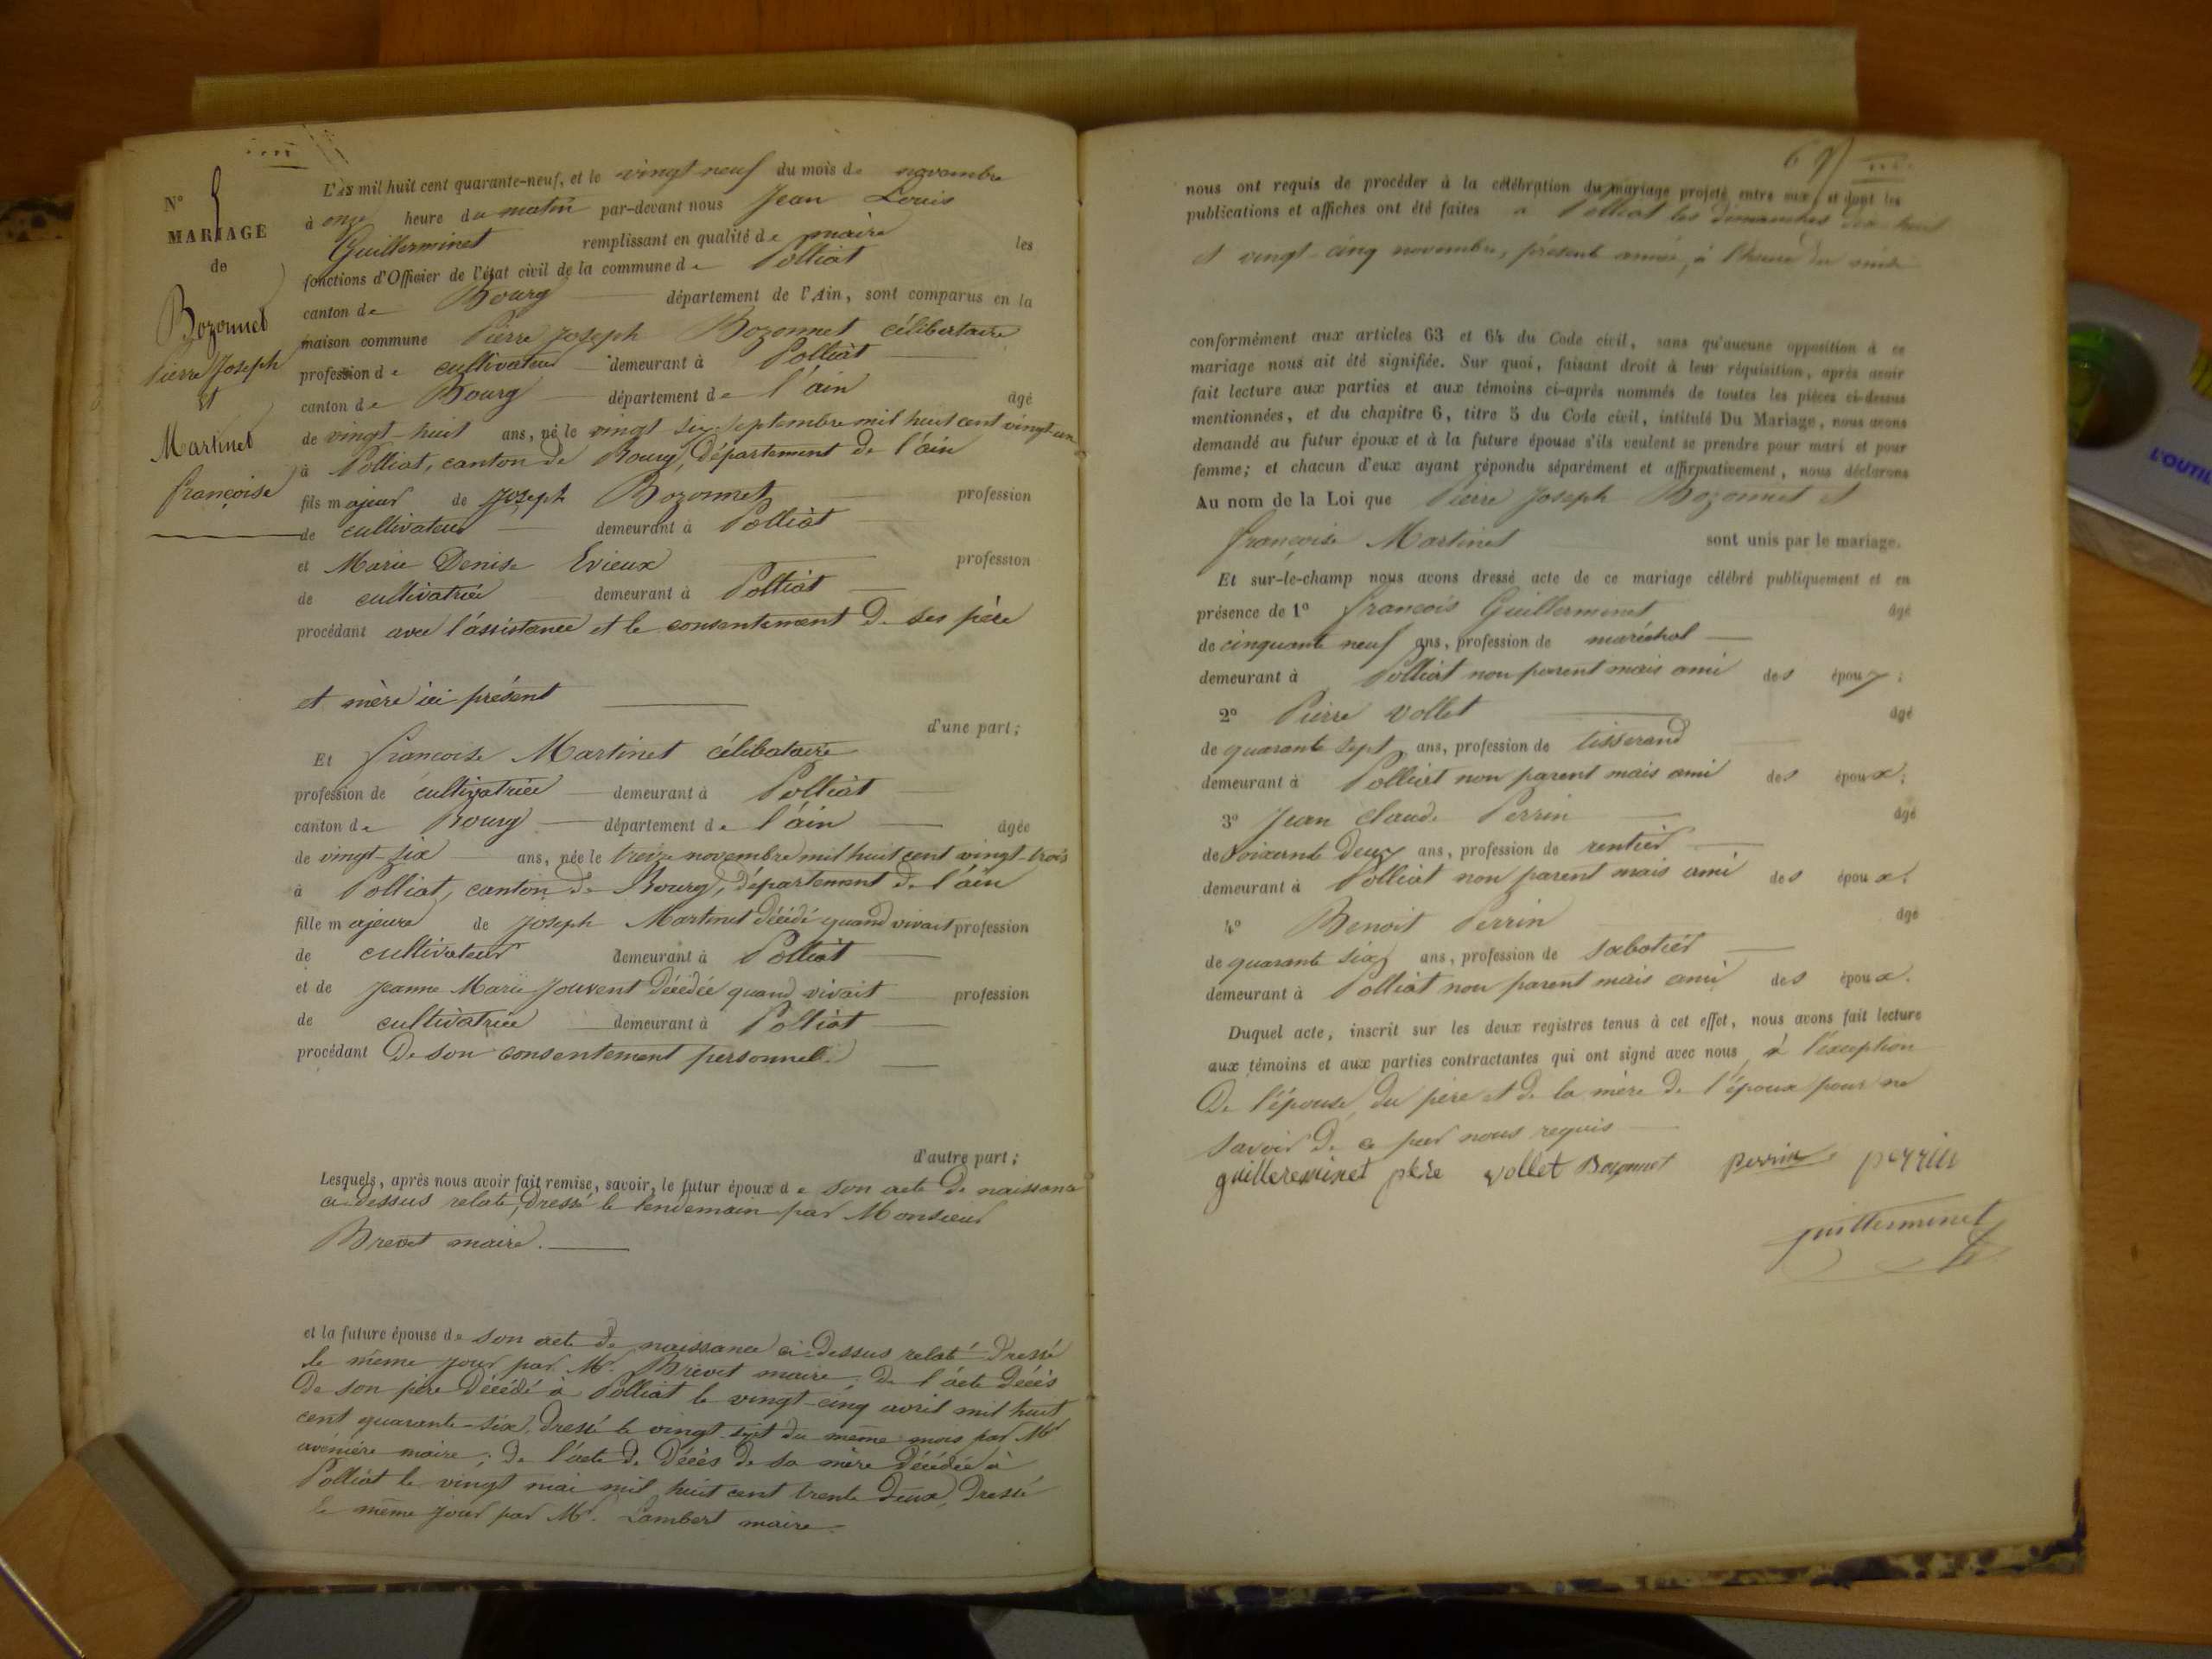 N° 5
MARIAGE
de
Bozonnet
Pierre Joseph
et
Martinet
françoise
L'an mil huit cent quarante-neuf, et le vingt neuf du mois de novembre
à onze heure du matin par-devant nous Jean Louis
Guillerminet remplissant en qualité de maire les
fonctions d'Officier de l'état civil de la commune de Polliat
canton de Bourg département de l'Ain, sont comparus en la
maison commune Pierre Joseph Bozonnet célibertaire
profession de cultivateur demeurant à Polliat
canton de Bourg département de l'ain âgé
de vingt-huit ans, né le vingt six septembre mil huit cent vingt-un
à Polliat, canton de Bourg, département de l'ain
fils majeur de Joseph Bozonnet profession
de cultivateur demeurant à Polliat
et Marie Denise Evieux profession
de cultivatrice demeurant à Polliat
procédant avec l'assistance et le consentement de ses père
et mère ici présent
d'une part;
Et françoise Martinet célibataire
profession de cultivatrice demeurant à Polliat
canton de Bourg département de l'ain âgée
de vingt-six ans, née le treize novembre mil huit cent vingt-trois
à Polliat, canton de Bourg, département de l'ain
fille majeure de Joseph Martinet décédé quand vivait profession
de cultivateur demeurant à Polliat
et de Jeanne Marie Jouvent décédée quand vivait profession
de cultivatrice demeurant à Polliat
procédant de son consentement personnel.
d'autre part;
Lesquels, après nous avoir fait remise, savoir, le futur époux de son acte de naissance
ci-dessus relaté, dressé le lendemain par Monsieur
Brevet maire.
et la future épouse de son acte de naissance ci-dessus relaté dressé
le même jour par Mr. Brevet maire; de l'acte décès
de son père décédé à Polliat le vingt-cinq avril mil huit
cent quarante-six, dressé le vingt sept du même mois par Mr
avenière maire; de l'acte de décès de sa mère décédée à
Polliat le vingt mai mil huit cent trente deux, dressé
le même jour par Mr. Lambert maire.
6
nous ont requis de procéder à la célébration du mariage projeté entre eux, et dont les
publications et affiches ont été faites à Polliat les dimanches dix huit
et vingt-cinq novembre, présente année, à l'heure de midi
conformément aux articles 63 et 64 du Code civil, sans qu'aucune opposition à ce
mariage nous ait été signifiée. Sur quoi, faisant droit à leur réquisition, après avoir
fait lecture aux parties et aux témoins ci-après nommés de toutes les pièces ci-dessus
mentionnées, et du chapitre 6, titre 5 du Code civil, intitulé Du Mariage, nous avons
demandé au futur époux et à la future épouse s'ils veulent se prendre pour mari et pour
femme; et chacun d'eux ayant répondu séparément et affirmativement, nous déclarons
Au nom de la Loi que Pierre Joseph Bozonnet et
françoise Martinet sont unis par le mariage.
Et sur-le-champ nous avons dressé acte de ce mariage célébré publiquement et en
présence de 1° françois Guillerminet âgé
de cinquante neuf ans, profession de maréchal
demeurant à Polliat non parent mais ami des époux;
2° Pierre Vollet âgé
de quarante sept ans, profession de tisserand
demeurant à Polliat non parent mais ami des époux;
3° Jean Claude Perrin âgé
de soixante deux ans, profession de rentier
demeurant à Polliat non parent mais ami des époux;
4° Benoit Perrin âgé
de quarante six ans, profession de sabotier
demeurant à Polliat non parent mais ami des époux.
Duquel acte, inscrit sur les deux registres tenus à cet effet, nous avons fait lecture
aux témoins et aux parties contractantes qui ont signé avec nous à l'exception
De l'épouse, du père et de la mère de l'époux pour ne
savoir de ce par nous requis
guillereminet père vollet Bozonnet perrin perrin
guillerminet
L'OUTIL